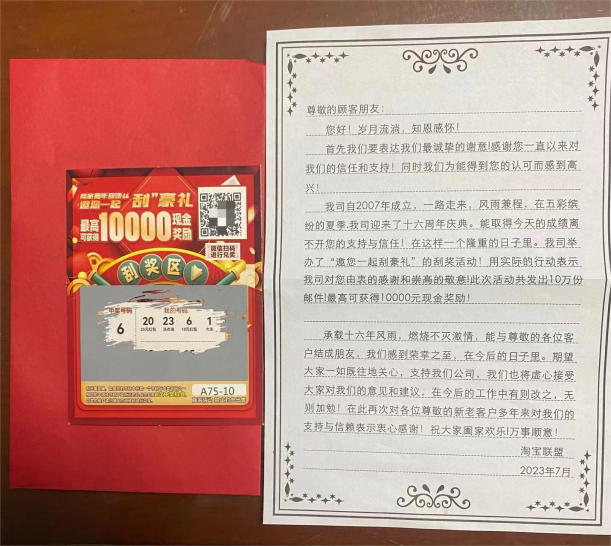 邀您一起“刮”豪礼
最高可获得10000现金奖励
微信扫码
进行兑奖
刮奖区
我的号码
6
20 23 6 1
A75-10
尊敬的顾客朋友：
您好！岁月流淌，知恩感怀！
首先我们要表达我们最诚挚的谢意!感谢您一直以来对
我们的信任和支持！同时我们为能得到您的认可而感到高
兴！
我司自2007年成立，一路走来，风雨兼程，在五彩缤
纷的夏季.我司迎来了十六周年庆典。能取得今天的成绩离
不开您的支持与信任！在这样一个隆重的日子里。我司举
办了“邀您一起刮豪礼”的刮奖活动！用实际的行动表示
我司对您由衷的感谢和崇高的敬意!此次活动共发出10万份
邮件!最高可获得10000元现金奖励！
承载十六年风雨，燃烧不灭激情，能与尊敬的各位客
户结成朋友，我们感到荣幸之至，在今后的日子里。期望
大家一如既往地关心，支持我们公司，我们也将虚心接受
大家对我们的意见和建议，在今后的工作中有则改之，无
则加勉！在此再次对各位尊敬的新老客户多年来对我们的
支持与信赖表示衷心感谢！祝大家阖家欢乐!万事顺意！
淘宝联盟
2023年7月